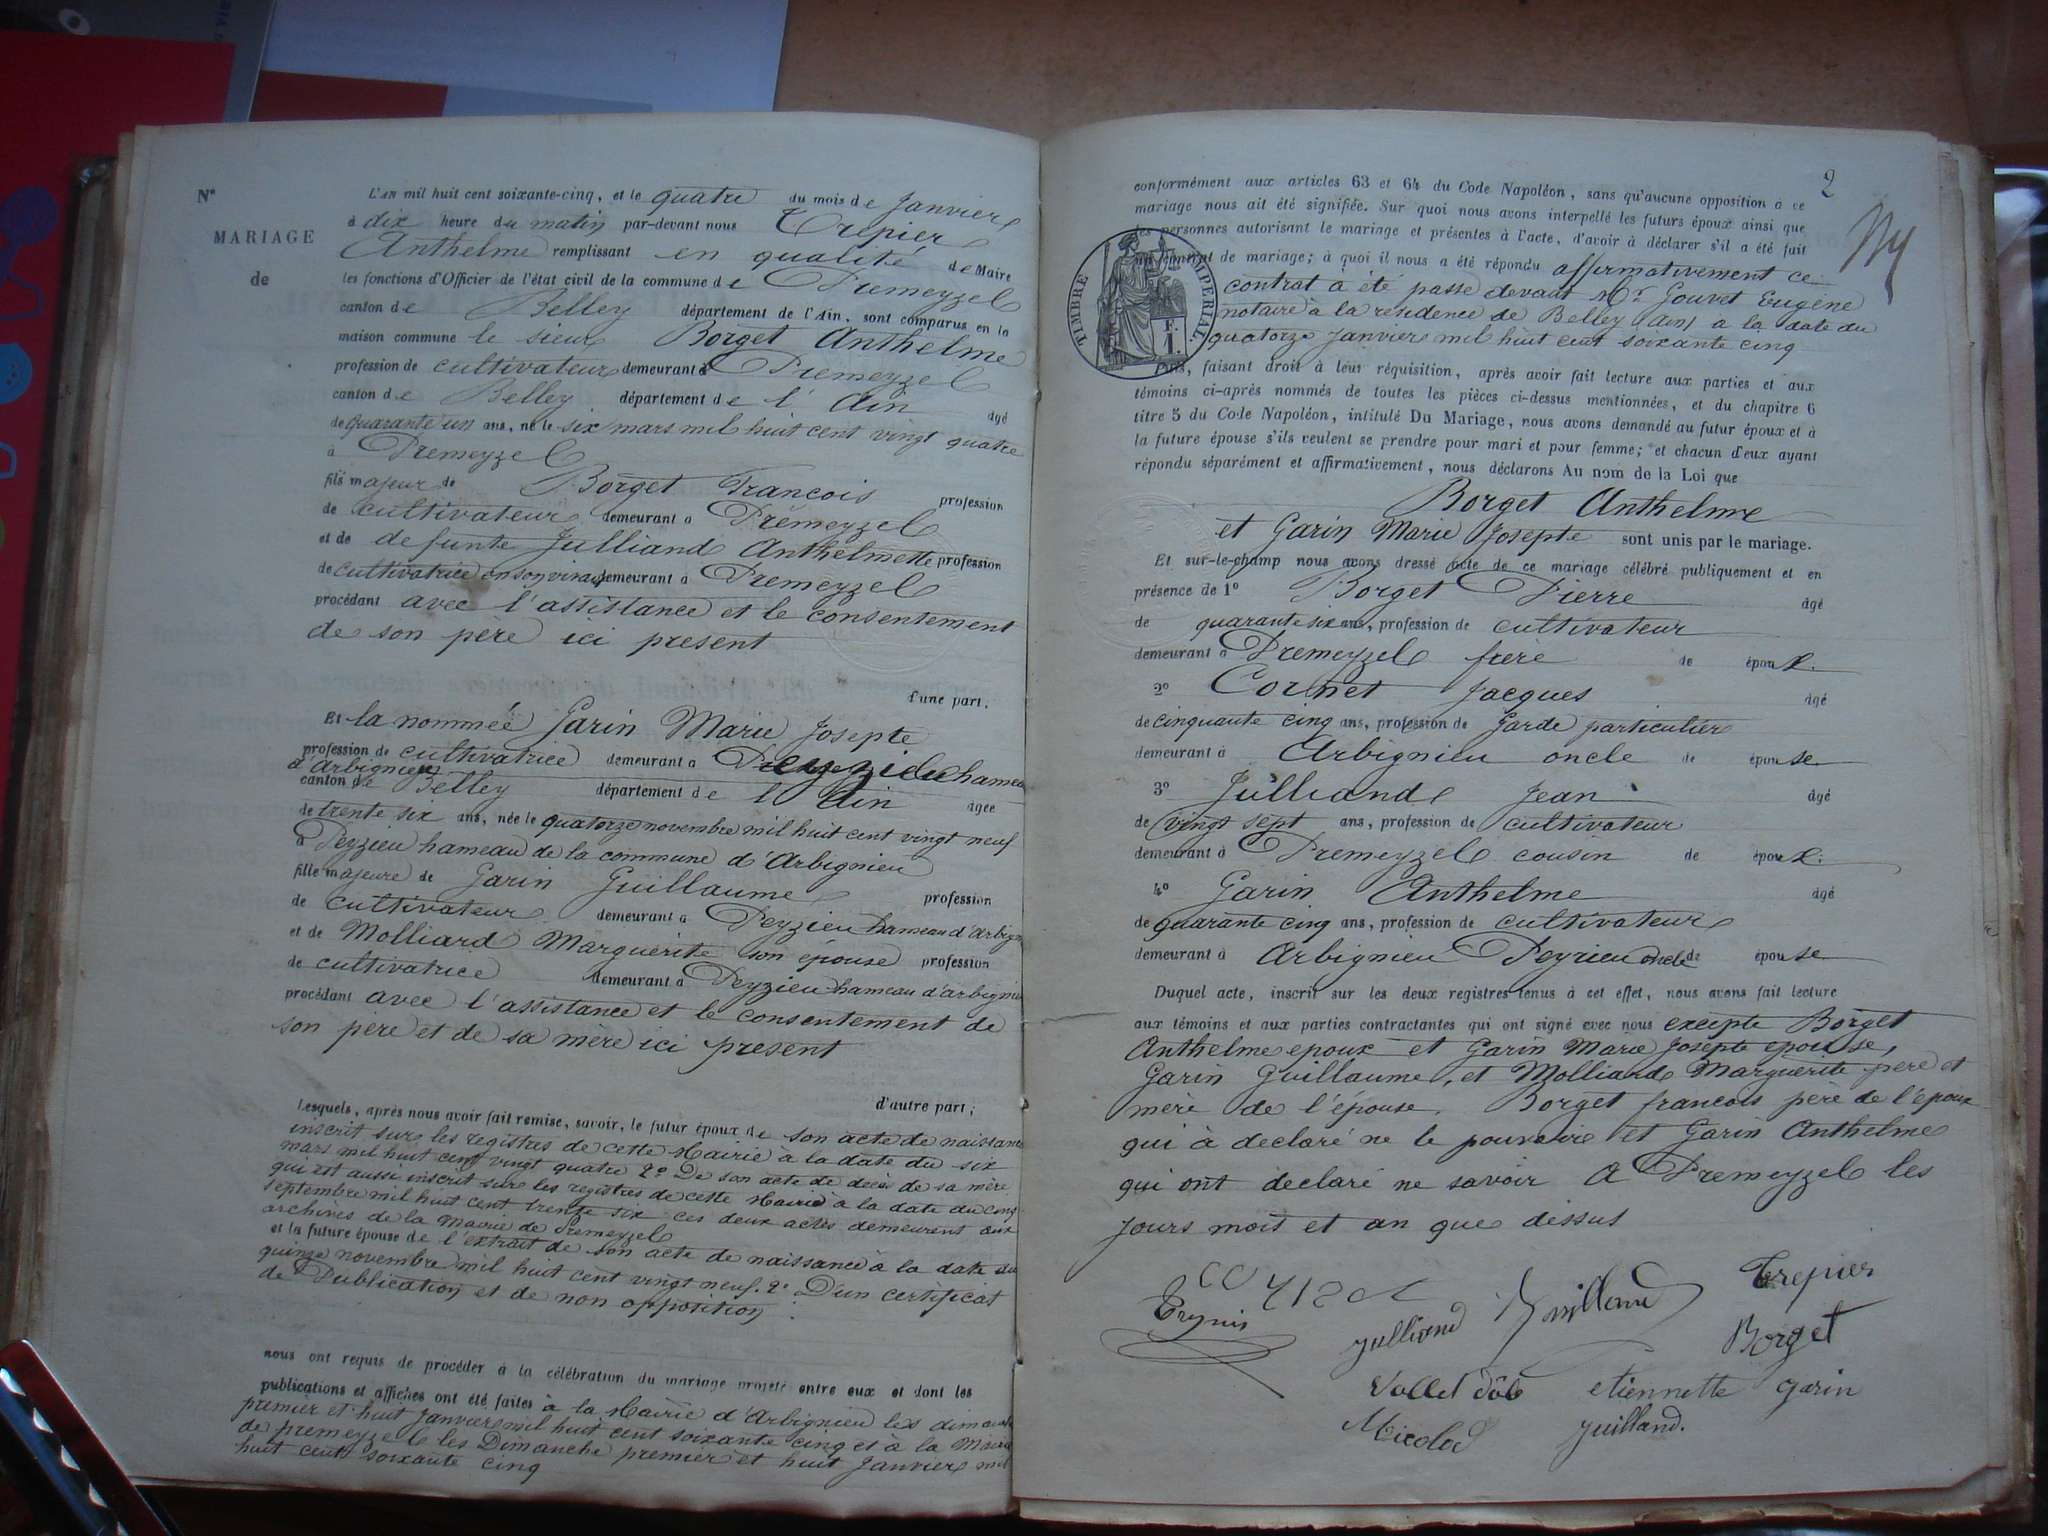 Nº
MARIAGE
de
L'AN mil huit cent soixante-cinq, et le quatre du mois de Janvier
à dix heure du matin par-devant nous Trepier
Anthelme remplissant en qualité de Maire
les fonctions d'Officier de l'état civil de la commune de Premeyzel
canton de Belley département de l'Ain, sont comparus en la
maison commune le sieur Borget Anthelme
profession de cultivateur demeurant à Premeyzel
canton de Belley département de l'Ain âgé
de quarante un ans, né le six mars mil huit cent vingt quatre
à Premeyzel
fils majeur de Borget François profession
de cultivateur demeurant à Premeyzel
et de defunte Julliand Anthelmette profession
de cultivatrice en son vivant demeurant à Premeyzel
procédant avec l'assistance et le consentement
de son père ici present
d'une part.
Et la nommée Garin Marie Josepte
profession de cultivatrice demeurant à Peyzieu hameau
d'Arbignieu
canton de Belley département de l'Ain âgée
de trente six ans, née le quatorze novembre mil huit cent vingt neuf
à Peyzieu hameau de la commune d'Arbignieu
fille majeure de Garin Guillaume profession
de cultivateur demeurant à Peyzieu hameau d'Arbign
et de Molliard Marguerite son épouse profession
de cultivatrice demeurant à Peyzieu hameau d'arbignieu
procédant avec l'assistance et le consentement de
son père et de sa mère ici present
d'autre part;
Lesquels, après nous avoir fait remise, savoir, le futur époux de son acte de naissance
inscrit sur les registres de cette Mairie à la date du six
mars mil huit cent vingt quatre 2º De son acte de décè de sa mère
qui est aussi inscrit sur les registres de cette Mairie à la date du cinq
septembre mil huit cent trente six ces deux actes demeurent aux
archives de la Mairie de Premeyzel
et la future épouse de l'extrait de son acte de naissance à la date du
quinze novembre mil huit cent vingt neuf. 2º D'un certificat
de Publication et de non opposition
nous ont requis de procéder à la célébration du mariage projeté entre eux et dont les
publications et affiches ont été faites à la Mairie d'Arbignieu les dimanche
premier et huit Janvier mil huit cent soixante cinq et à la Mairie
de premeyzel les Dimanche premier et huit Janvier mil
huit cent soixante cinq
2
conformément aux articles 63 et 64 du Code Napoléon, sans qu'aucune opposition à ce
mariage nous ait été signifiée. Sur quoi nous avons interpellé les futurs époux ainsi que
les personnes autorisant le mariage et présentes à l'acte, d'avoir à déclarer s'il a été fait
un contrat de mariage; à quoi il nous a été répondu affirmativement ce
contrat à été passé devant Mr Gouvet Eugène
notaire à la résidence de Belley (Ain) à la date du
quatorze Janvier mil huit cent soixante cinq
TIMBRE IMPÉRIAL
F.
1.
Puis, faisant droit à leur réquisition, après avoir fait lecture aux parties et aux
témoins ci-après nommés de toutes les pièces ci-dessus mentionnées, et du chapitre 6
titre 5 du Code Napoléon, intitulé Du Mariage, nous avons demandé au futur époux et à
la future épouse s'ils veulent se prendre pour mari et pour femme; et chacun d'eux ayant
répondu séparément et affirmativement, nous déclarons Au nom de la Loi que
Borget Anthelme
et Garin Marie Josepte sont unis par le mariage.
Et sur-le-champ nous avons dressé acte de ce mariage célébré publiquement et en
présence de 1º Borget Pierre âgé
de quarante six ans, profession de cultivateur
demeurant à Premeyzel frère de époux.
2º Cornet Jacques âgé
de cinquante cinq ans, profession de Garde particulier
demeurant à Arbignieu oncle de épouse
3º Julliand Jean âgé
de vingt sept ans, profession de cultivateur
demeurant à Premeyzel cousin de époux.
4º Garin Anthelme âgé
de quarante cinq ans, profession de cultivateur
demeurant à Arbignieu Peyzieu oncle de épouse
Duquel acte, inscrit sur les deux registres tenus à cet effet, nous avons fait lecture
aux témoins et aux parties contractantes qui ont signé avec nous excepte Borget
Anthelme epoux et Garin Marie Josepte epouse,
Garin Guillaume, et Molliard Marguerite père et
mère de l'épouse. Borget francois père de l'époux
qui à declaré ne le pouvoir et Garin Anthelme
qui ont declaré ne savoir A Premeyzel les
jours mois et an que dessus
Trepier
julliand
Borget
etiennette garin
juilland.